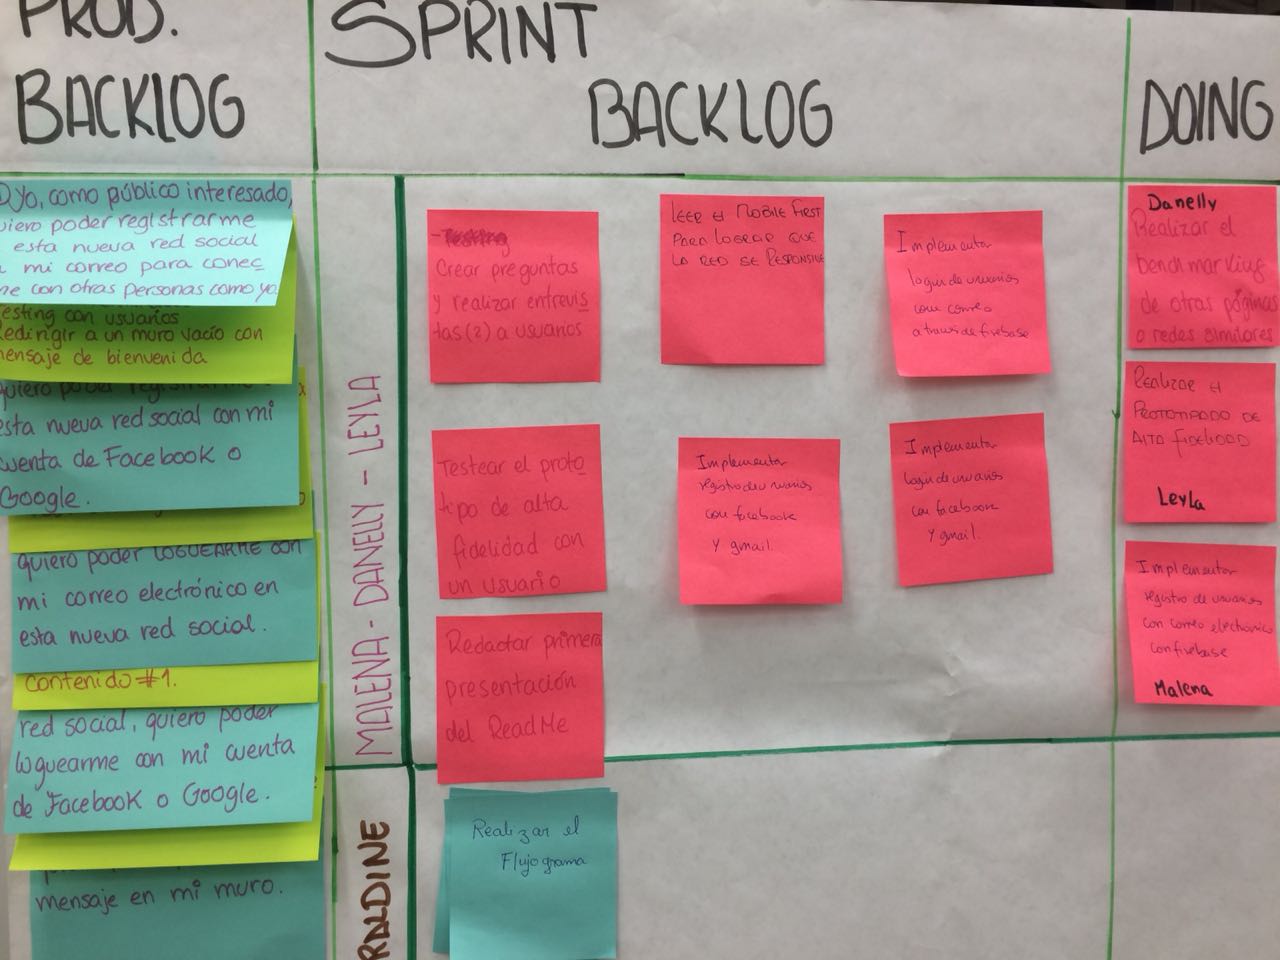 PROD.
BACKLOG
SPRINT
BACKLOG
DOING
Yo, como público interesado,
quiero poder registrarme
esta nueva red social
mi correo para conec
me con otras personas como yo.
testing con usuarios
Redirigir a un muro vacío con
mensaje de bienvenida
quiero poder
esta nueva red social con mi
cuenta de Facebook o
Google.
quiero poder LOGUEARME con
mi correo electrónico en
esta nueva red social.
contenido #1.
red social, quiero poder
loguearme con mi cuenta
de Facebook o Google.
mensaje en mi muro.
MALENA - DANELLY - LEYLA
RALDINE
- Testing
Crear preguntas
y realizar entrevis
tas (2) a usuarios
LEER EL MOBILE FIRST
PARA LOGRAR QUE
LA RED SE RESPONSIVE
Implementar
login de usuarios
con correo
a traves de firebase
Testear el proto
tipo de alta
fidelidad con
un usuario
Implementar
registro de usuarios
con facebook
y gmail.
Implementar
login de usuarios
con facebook
y gmail.
Redactar primera
presentación
del ReadMe
Realizar el
Flujograma
Danelly
Realizar el
benchmarking
de otras páginas
o redes similares
REALIZAR EL
PROTOTIPADO DE
ALTA FIDELIDAD
Leyla
Implementar
registro de usuarios
con correo electronico
con firebase
Malena